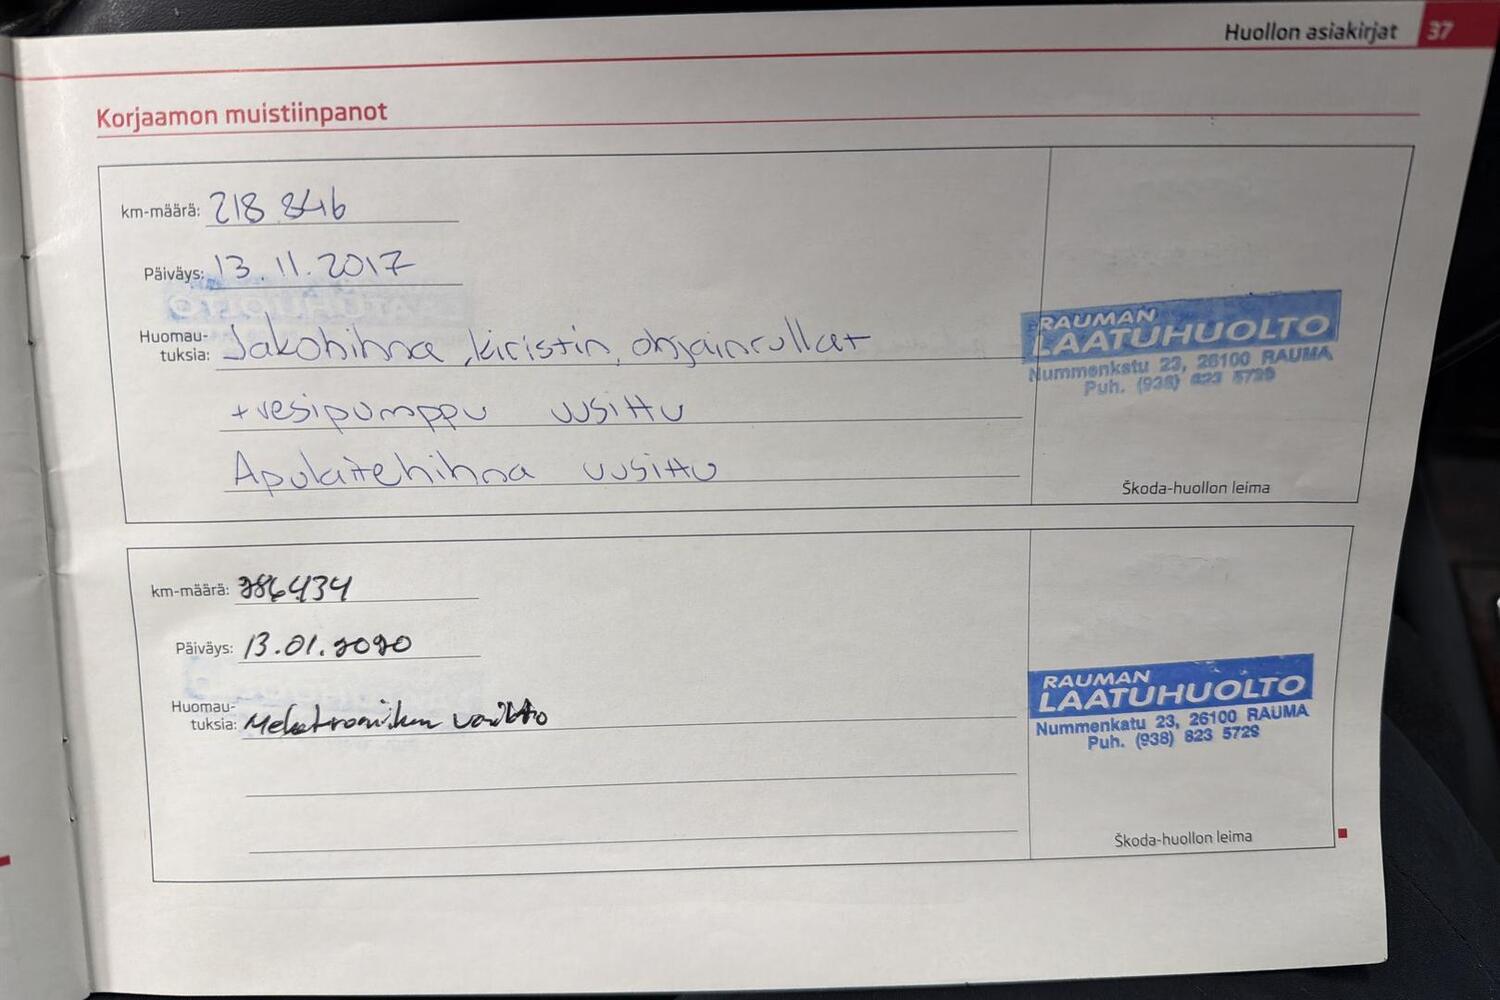 Huollon asiakirjat 37
Korjaamon muistiinpanot
km-määrä: 218 846
Päiväys: 13.11.2017
Huomau-
tuksia: Jakohihna, kiristin, ohjainrullat
+vesipumppu uusittu
Apulaitehihna uusittu
RAUMAN
LAATUHUOLTO
Nummenkatu 23, 26100 RAUMA
Puh. (938) 823 5728
Škoda-huollon leima
km-määrä: 286434
Päiväys: 13.01.2020
Huomau-
tuksia: Mekatroniikan vaihto
RAUMAN
LAATUHUOLTO
Nummenkatu 23, 26100 RAUMA
Puh. (938) 823 5728
Škoda-huollon leima